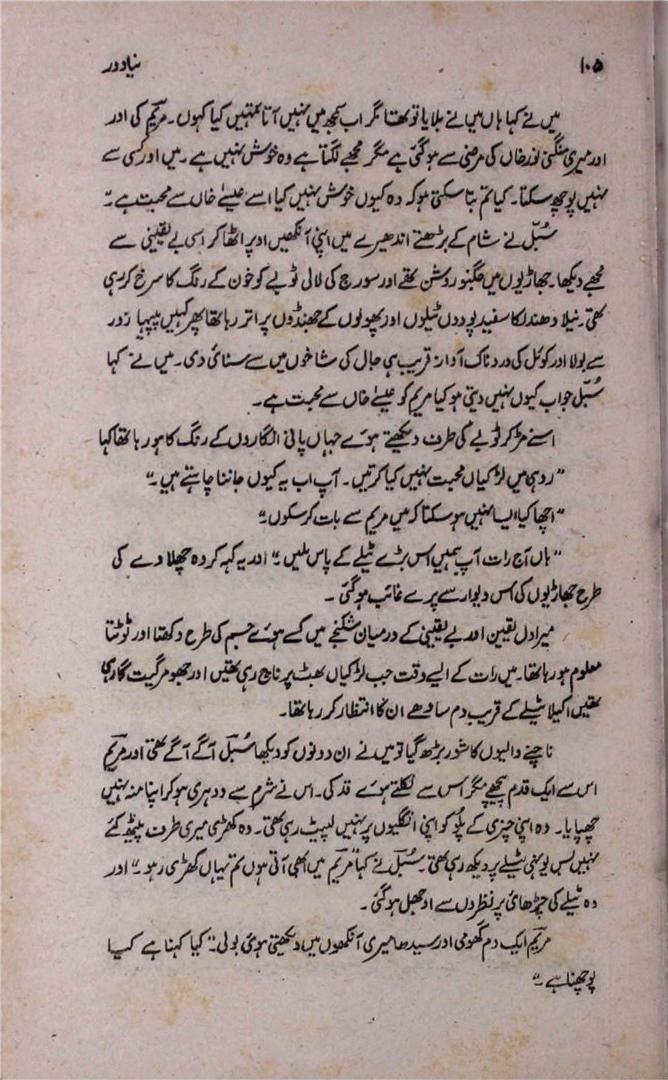 ۱۰۵ نیا دور
میں نے کہا ہاں میں نے بلایا تو تھا مگر اب سمجھ میں نہیں آتا تمہیں کیا کہوں۔ مریم کی اور
اور میری منگنی نور خاں کی مرضی سے ہو گئی ہے مگر مجھے لگتا ہے وہ خوش نہیں ہے۔ میں اور کسی سے
نہیں پوچھ سکتا۔ کیا تم بتا سکتی ہو کہ وہ کیوں خوش نہیں کیا اسے عیسےٰ خاں سے محبت ہے ۔"
سُبّل نے شام کے بڑھتے اندھیرے میں اپنی آنکھیں اوپر اٹھا کر اسی بے یقینی سے
مجھے دیکھا۔ جھاڑیوں میں جگنو روشن تھے اور سورج کی لالی ٹوبے کو خون کے رنگ کا سرخ کر رہی
تھی۔ نیلا دھندلکا سفید پودوں ٹیلوں اور پھولوں کے جھنڈوں پر اتر رہا تھا پھر کہیں پپیہا زور
سے بولا اور کوئل کی دردناک آواز قریب ہی جال کی شاخوں میں سے سنائی دی۔ میں نے کہا
سُبّل جواب کیوں نہیں دیتی ہو کیا مریم کو عیسےٰ خاں سے محبت ہے۔
اسنے مڑ کر ٹوبے کی طرف دیکھتے ہوئے جہاں پانی انگاروں کے رنگ کا ہو رہا تھا کہا
"روہی میں لڑکیاں محبت نہیں کیا کرتیں۔ آپ اب یہ کیوں جاننا چاہتے ہیں ۔"
"اچھا کیا ایسا نہیں ہو سکتا کہ میں مریم سے بات کر سکوں۔"
"ہاں آج رات آپ ہمیں اس بڑے ٹیلے کے پاس ملیں ۔" اور یہ کہہ کر وہ چھلاوے کی
طرح جھاڑیوں کی اس دیوار سے پرے غائب ہو گئی ۔
میرا دل یقین اور بے یقینی کے درمیان شکنجے میں کسے ہوئے جسم کی طرح دکھتا اور ٹوٹتا
معلوم ہو رہا تھا۔ میں رات کے ایسے وقت جب لڑکیاں بھٹ پر ناچ رہی تھیں اور جھومر گیت گا رہی
تھیں اکیلا ٹیلے کے قریب دم سادھے ان کا انتظار کر رہا تھا۔
ناچنے والیوں کا شور بڑھ گیا تو میں نے ان دونوں کو دیکھا سُبّل آگے آگے تھی اور مریم
اس سے ایک قدم پیچھے مگر اس سے نکلتے ہوئے قد کی۔ اس نے شرم سے دوہری ہو کر اپنا منہ نہیں
چھپایا۔ وہ اپنی چنری کے پلّو کو اپنی انگلیوں پر نہیں لپیٹ رہی تھی۔ وہ کھڑی میری طرف پیٹھ کئے
نہیں بس یونہی ٹیلے پر دیکھ رہی تھی۔ سُبّل نے کہا "مریم میں ابھی آتی ہوں تم یہاں کھڑی رہو ۔" اور
وہ ٹیلے کی چڑھائی پر نظروں سے اوجھل ہو گئی ۔
مریم ایک دم گھومی اور سیدھا میری آنکھوں میں دیکھتی ہوئی بولی :" کیا کہنا ہے کیا
پوچھنا ہے ۔"